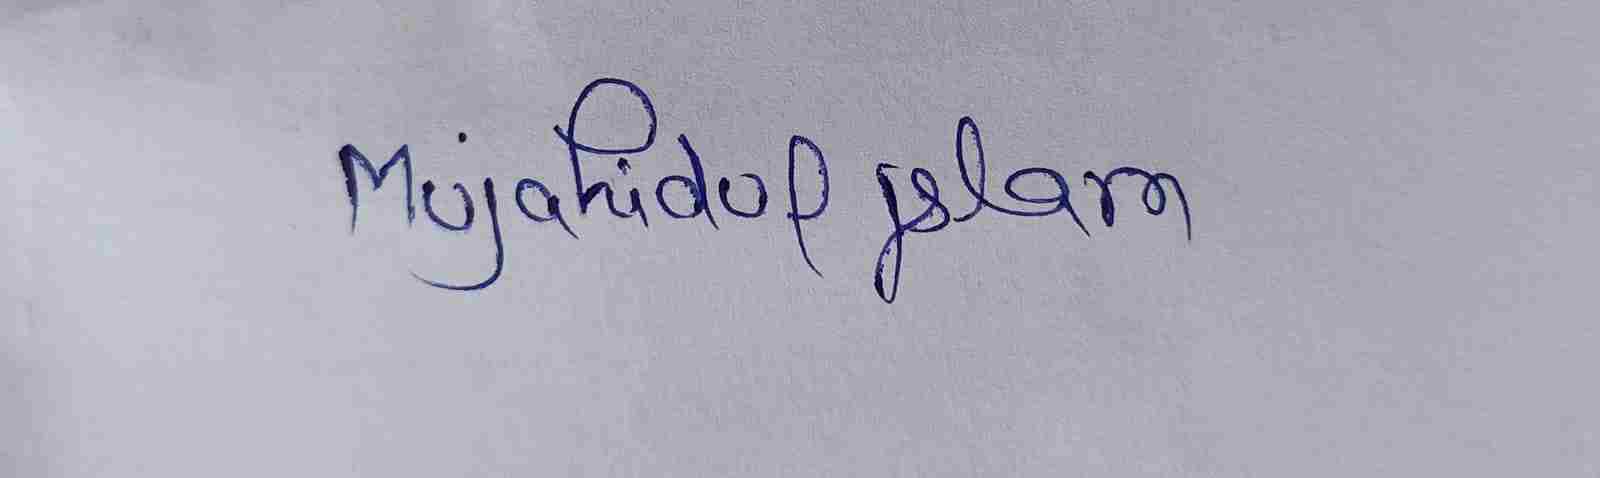 Mujahidul islam